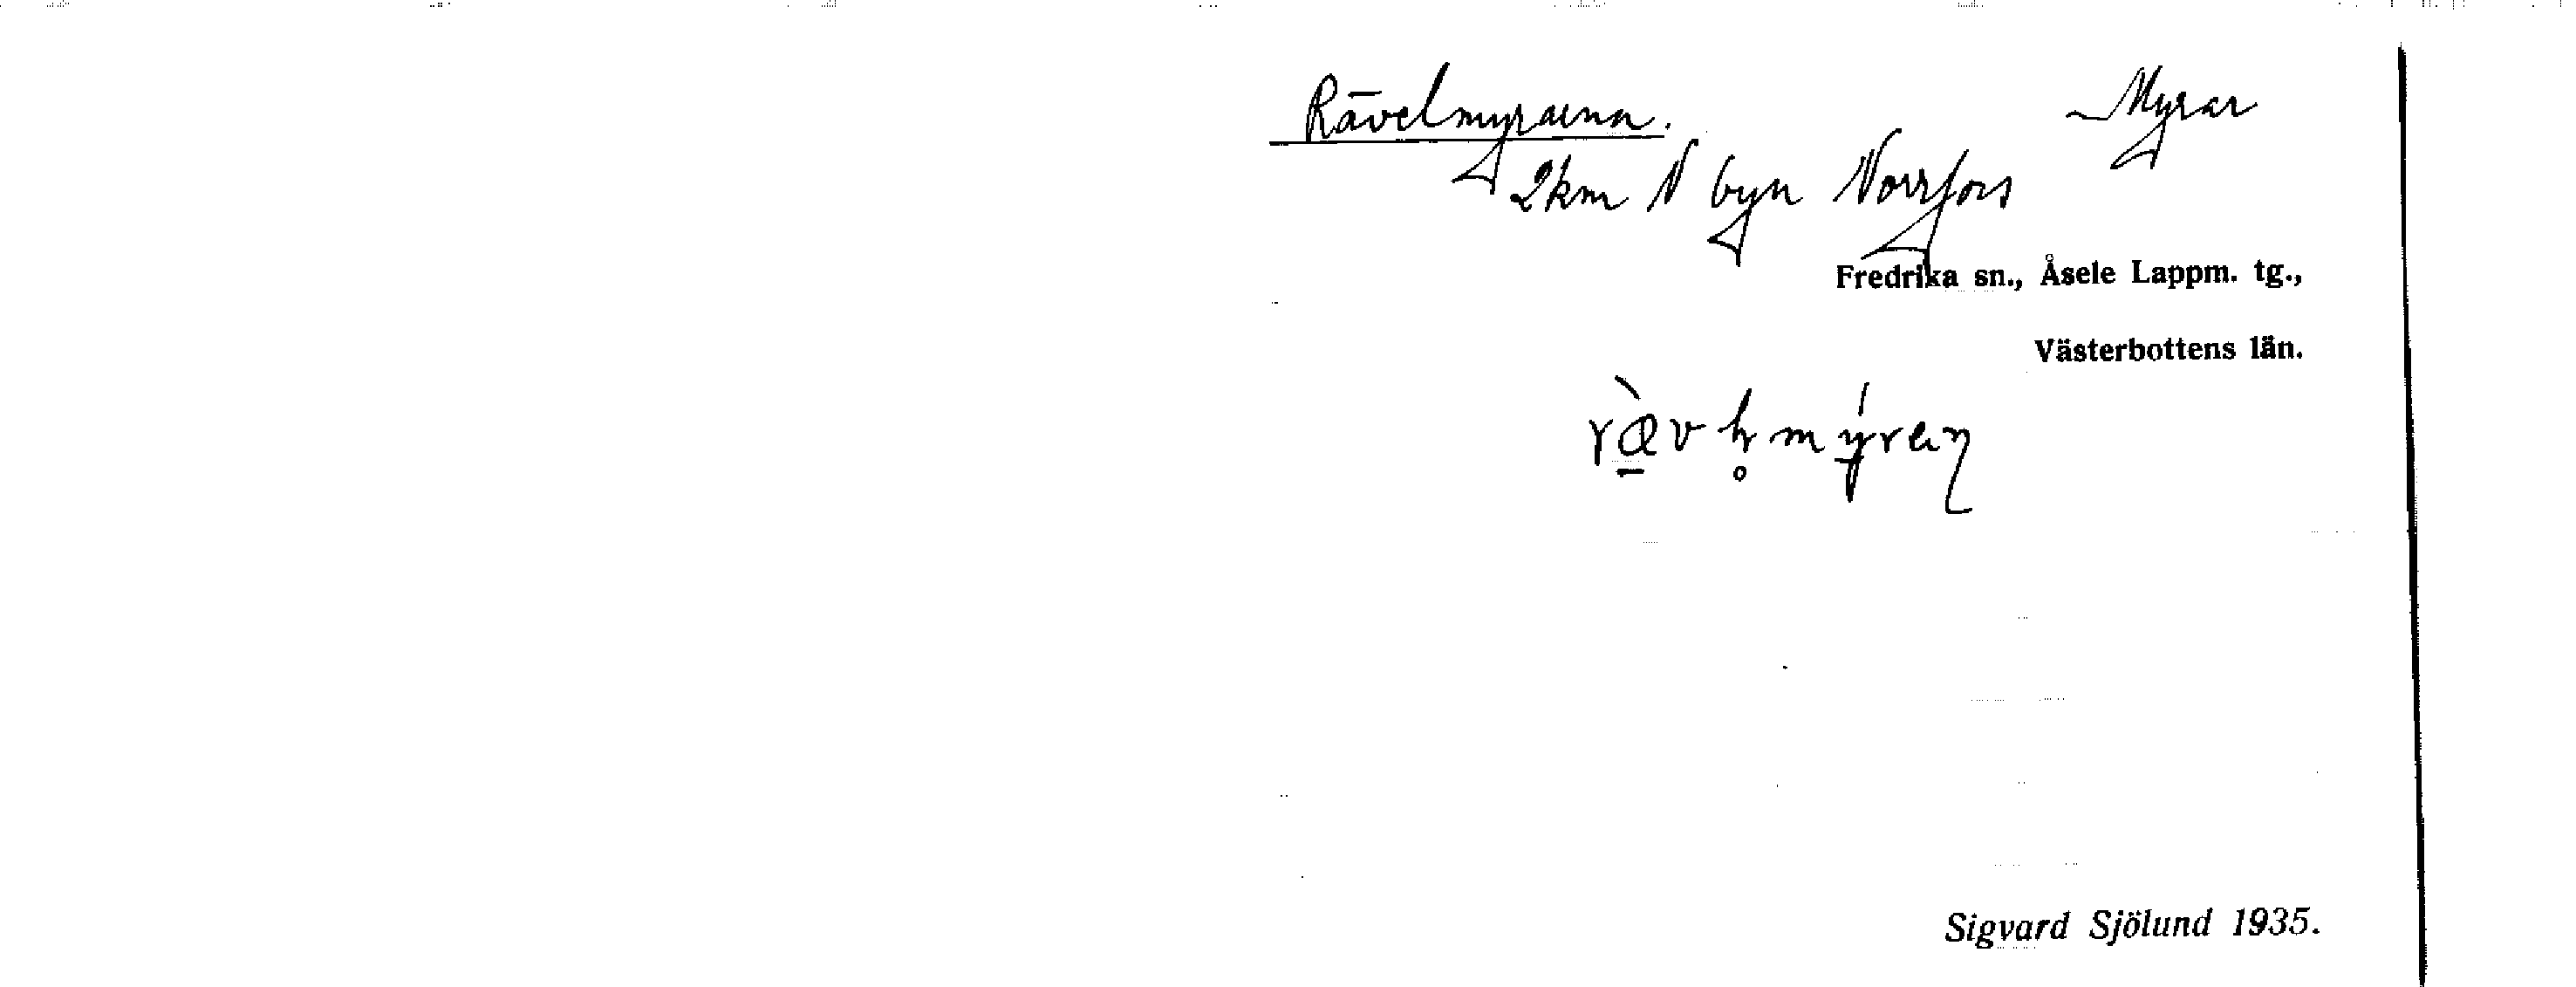 Rävelmyrarna. Myrar
2km N byn Norrfors
Fredrika sn., Åsele Lappm. tg.,
Västerbottens län.
Sigvard Sjölund 1935.